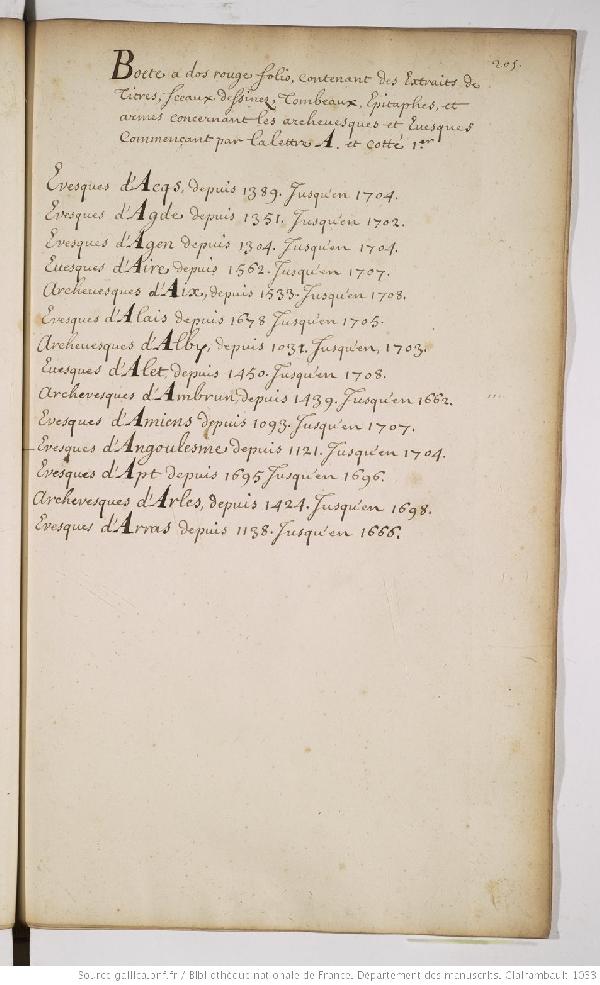 205.
Boete a dos rouge folio, contenant des Extraits de
Titres, sceaux dessinez, Tombeaux, Epitaphes, et
armes concernant les archeuesques et Euesques
Commençant par la lettre A. et cotté 1er
Evesques d'Acqs, depuis 1389. Jusqu'en 1704.
Evesques d'Agde depuis 1351. Jusqu'en 1702.
Evesques d'Agen depuis 1304. Jusqu'en 1704.
Euesques d'Aire depuis 1562. Jusqu'en 1707.
Archeuesques d'Aix, depuis 1533. Jusqu'en 1708.
Evesques d'Alais depuis 1678 Jusqu'en 1705.
Archeuesques d'Alby, depuis 1031. Jusqu'en, 1703.
Euesques d'Alet, depuis 1450. Jusqu'en 1708.
Archevesques d'Ambrun, depuis 1439. Jusqu'en 1662.
Evesques d'Amiens depuis 1093. Jusqu'en 1707.
Evesques d'Angoulesme depuis 1121. Jusqu'en 1704.
Evesques d'Apt depuis 1695 Jusqu'en 1696.
Archevesques d'Arles, depuis 1424. Jusqu'en 1698.
Evesques d'Arras depuis 1138. Jusqu'en 1666.
Source gallica.bnf.fr / Bibliothèque nationale de France. Département des manuscrits. Clairambault 1053